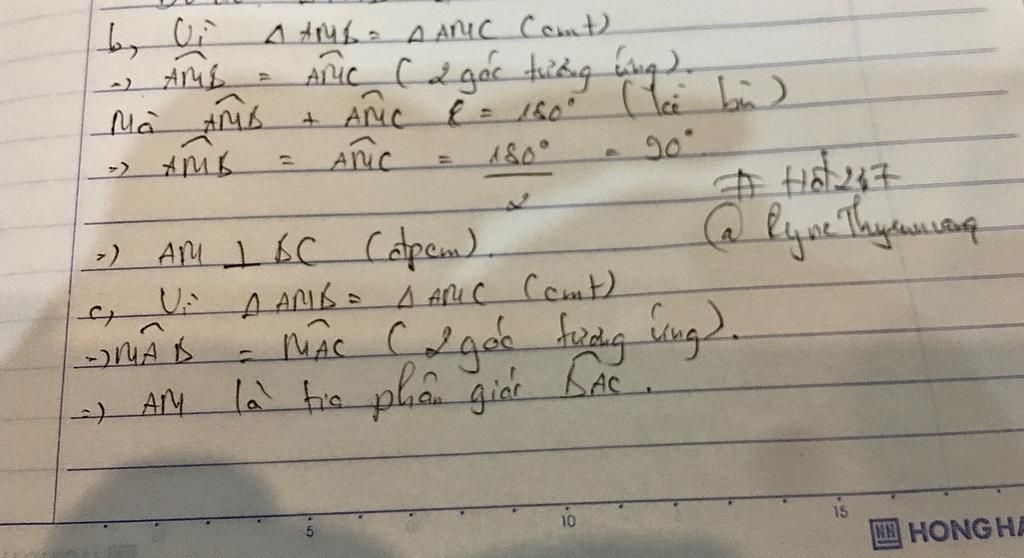 b, Vì Δ AMB = Δ AMC (cmt)
=> AMB = AMC (2 góc tương ứng).
Mà AMB + AMC = 180° (kề bù)
=> AMB = AMC = 180° / 2 = 90°
# Hđ247
=> AM ⊥ BC (đpcm).
c, Vì Δ AMB = Δ AMC (cmt)
=> MAB = MAC (2 góc tương ứng).
=> AM là tia phân giác BAC.
5 10 15
HONG HA